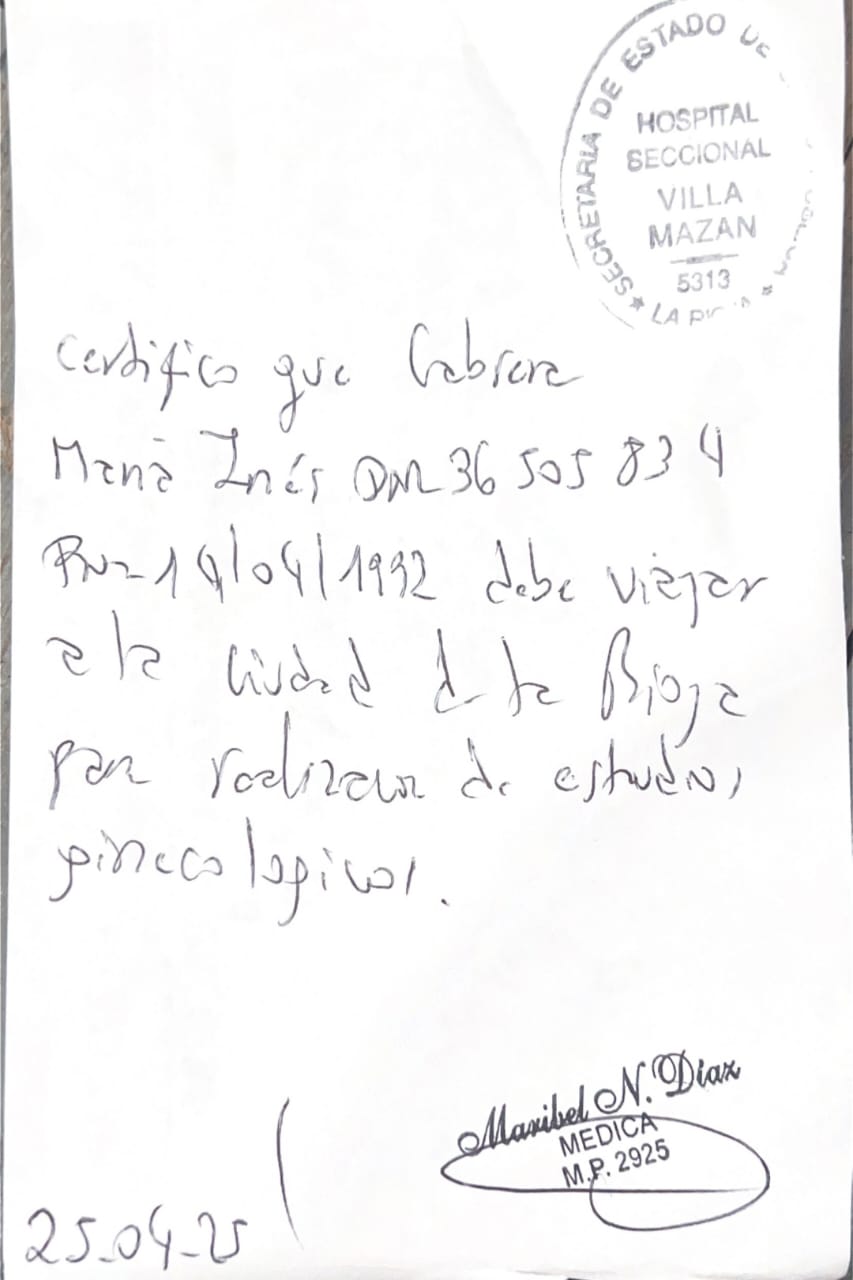 SECRETARIA DE ESTADO DE
HOSPITAL
SECCIONAL
VILLA
MAZAN
5313
LA
Certifico que Cabrera
Maria Inés DNI 36 505 834
FN= 14/04/1992 debe viajar
a la Ciudad d La Rioja
par realizacion de estudios
ginecologicos.
Maribel N. Diaz
MEDICA
M.P. 2925
25-04-25